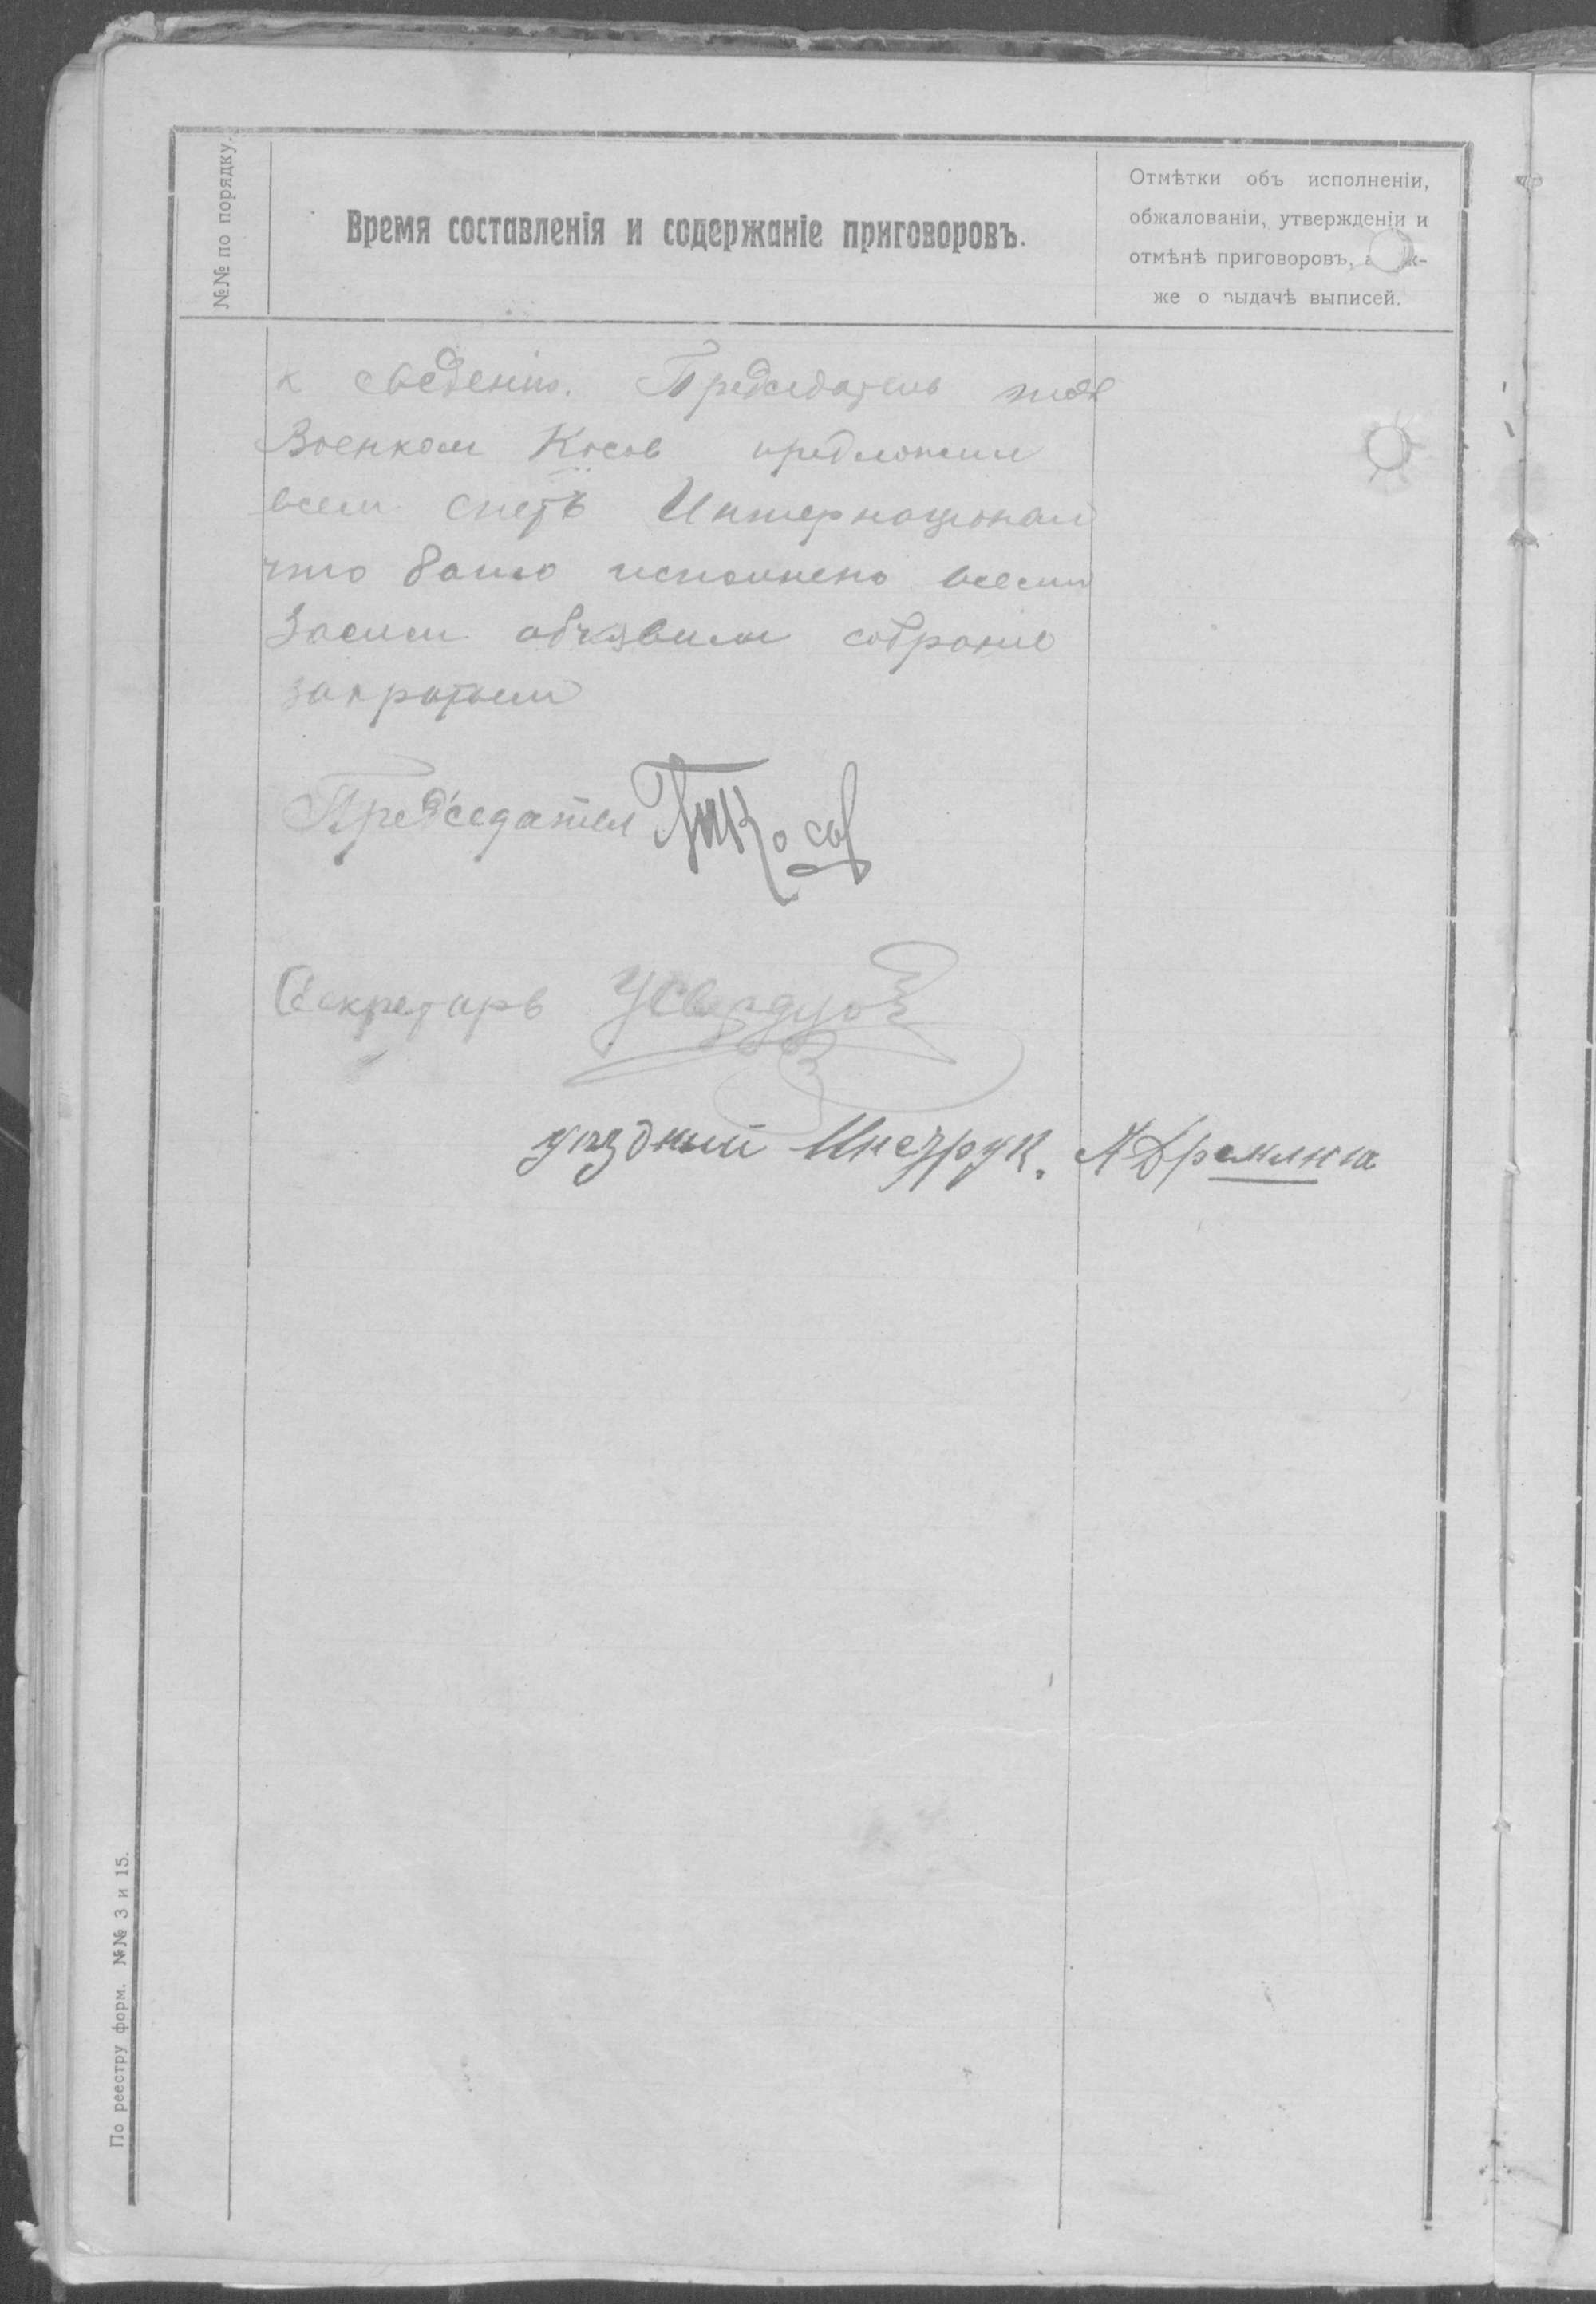 №№ по порядку.
Время составленія и содержаніе приговоровъ.
Отмѣтки объ исполненіи,
обжалованіи, утвержденіи и
отмѣнѣ приговоровъ,
же о выдачѣ выписей.
к сведению. Председатель тов
Военком Косов предложил
всем спеть Интернационал
что было исполнено всеми
Засим объявил собрание
закрытым
Председател Косов
Секретарь
уездный Инструк. А Дремлюга
По реестру форм. №№ 3 и 15.